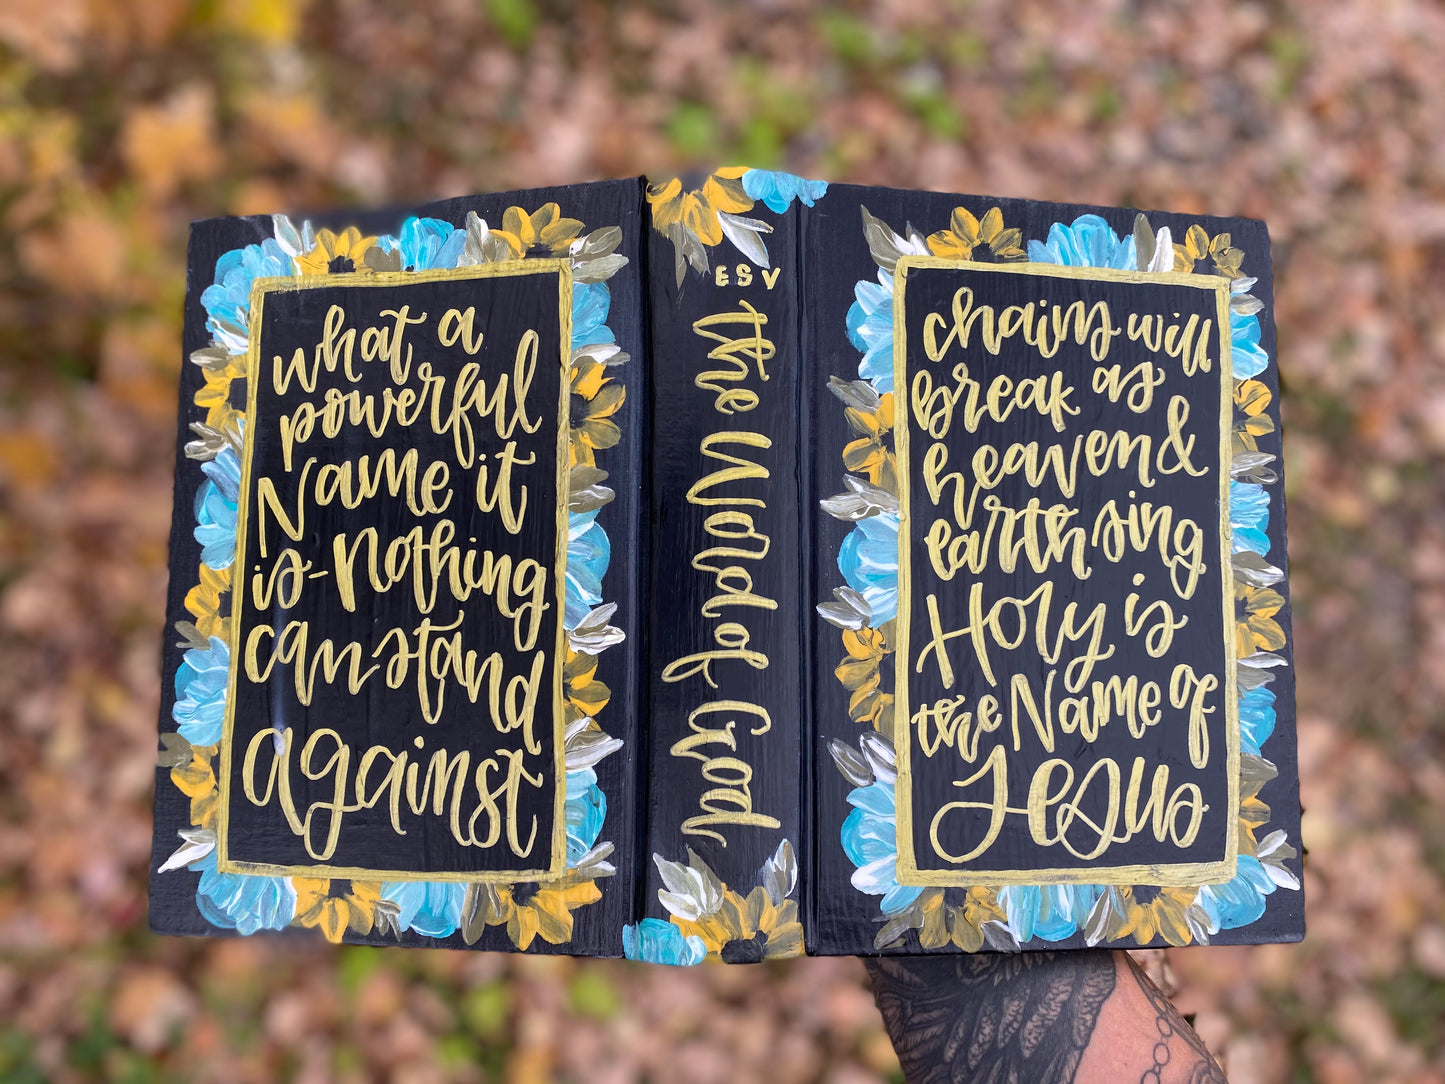 what a
powerful
Name it
is-nothing
can stand
against
ESV
the Word of God
chains will
break as
heaven &
earth sing
Holy is
the Name of
Jesus